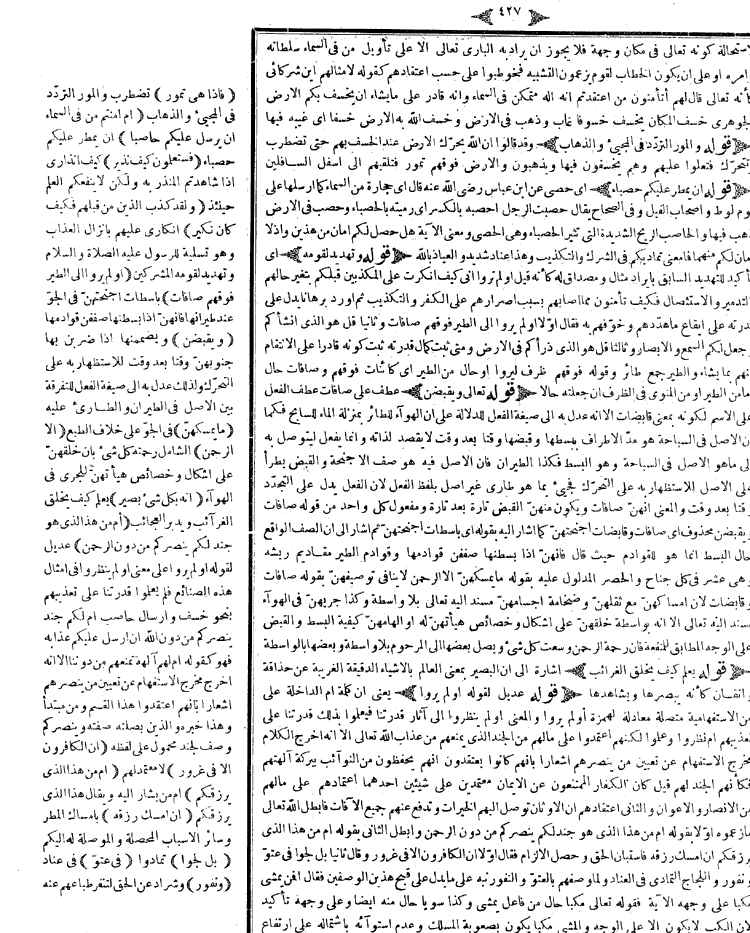 ٤٢٧
استحالة كونه تعالى فى مكان وجهة فلا يجوز ان يراد به البارى تعالى الا على تأويل من فى السماء سلطانه
وامره او على ان يكون الخطاب لقوم يزعمون التشبيه فخوطبوا على حسب اعتقادهم كقوله لامثالهم اين شركائى
كأنه تعالى قال لهم أتأمنون من اعتقدتم انه اله متمكن فى السماء وانه قادر على مايشاء ان يخسف بكم الارض
الجوهرى خسف المكان يخسف خسوفا غاب وذهب فى الارض وخسف الله به الارض خسفا اى غيبه فيها
قوله والمور التردد فى المجئ والذهاب وقد قالوا ان الله يحرك الارض عند الخسف بهم حتى تضطرب
وتتحرك فتعلوا عليهم وهم يخسفون فيها ويذهبون والارض فوقهم تمور فتلقيهم الى اسفل السافلين
قوله ان يمطر عليكم حصباء اى حصى عن ابن عباس رضى الله عنه قال اى حجارة من السماء كما ارسلها على
قوم لوط واصحاب الفيل وفى الصحاح يقال حصبت الرجل احصبه بالكسر اى رميته بالحصباء وحصب فى الارض
ذهب فيها والحاصب الريح الشديدة التى تثير الحصباء وهى الحصى ومعنى الآية هل حصل لكم امان من هذين واذ لا
امان لكم منهما فامعنى تماديكم فى الشرك والتكذيب وهذا عناد شديد والعياذ بالله قوله وتهديد لقومه اى
تأكيد للتهديد السابق بايراد مثال ومصداق له كأنه قيل اولم تروا انى كيف انكرت على المكذبين قبلكم بتغيير حالهم
بالتدمير والاستئصال فكيف تأمنون مما اصابهم بسبب اصرارهم على الكفر والتكذيب ثم اورد برهانا يدل على
قدرته على ايقاع ماهددهم وخوفهم به فقال اولا اولم يروا الى الطير فوقهم صافات وثانيا قل هو الذى انشأكم
وجعل لكم السمع والابصار وثالثا قل هو الذى ذرأكم فى الارض ومتى ثبت كمال قدرته ثبت كونه قادرا على الانتقام
منهم بما يشاء والطير جمع طائر وقوله فوقهم ظرف ليروا او حال من الطير اى كائنات فوقهم وصافات حال
اما من الطير او من المنوى فى الظرف ان جعلته حالا قوله تعالى ويقبضن عطف على صافات عطف الفعل
على الاسم لكونه بمعنى قابضات الا انه عدل به الى صيغة الفعل للدلالة على ان الهوآء للطائر بمنزلة الماء للسابح فكما
ان الاصل فى السباحة هو مد الاطراف ببسطها وقبضها وقتا بعد وقت لا يقصد لذاته وانما يفعل ليتوصل به
الى ماهو الاصل فى السباحة وهو البسط فكذا الطيران فان الاصل فيه هو صف الاجنحة والقبض يطرأ
على الاصل للاستظهار به على التحرك فجئ بما هو طارى غير اصل بلفظ الفعل لان الفعل يدل على التجدد
وقتا بعد وقت والمعنى انهن صافات ويكون منهن القبض تارة بعد تارة ومفعول كل واحد من قوله صافات
ويقبضن محذوف اى صافات وقابضات اجنحتهن كما اشار اليه بقوله اى باسطات اجنحتهن ثم اشار الى ان الصف الواقع
حال البسط انما هو للقوادم حيث قال فانهن اذا بسطنها صففن قوادمها وقوادم الطير مقاديم ريشه
وهى عشر فى كل جناح والحصر المدلول عليه بقوله مايمسكهن الا الرحمن لاينافى توصيفهن بقوله صافات
وقابضات لان امساكهن مع ثقلهن وضخامة اجسامهن مسند اليه تعالى بلا واسطة وكذا جريهن فى الهوآء
مسند اليه تعالى الا انه بواسطة خلقهن على اشكال وخصائص هيآتهن له او الهامهن كيفية البسط والقبض
على الوجه المطابق للمنفعة فان رحمة الرحمن وسعت كل شئ ويصل بعضها الى المرحوم بلا واسطة وبعضها بالواسطة
قوله يعلم كيف يخلق الغرائب اشارة الى ان البصير بمعنى العالم بالاشياء الدقيقة الغريبة عن حذاقة
واتقان كأنه يبصرها ويشاهدها قوله عديل لقوله اولم يروا يعنى ان كلمة ام الداخلة على
من الاستفهامية متصلة معادلة لهمزة أولم يروا والمعنى اولم ينظروا الى آثار قدرتنا فيعلموا بذلك قدرتنا على
تعذيبهم ام نظروا وعلموا لكنهم اعتمدوا على مالهم من الجند الذى يمنعهم من عذاب الله تعالى الا انه اخرج الكلام
مخرج الاستفهام عن تعيين من ينصرهم اشعارا بانهم كانوا يعتقدون انهم يحفظون من النوآئب ببركة آلهتهم
فكأنهم الجند لهم قيل كان الكفار الممتنعون عن الايمان معتمدين على شيئين احدهما اعتمادهم على مالهم
من الانصار والاعوان والثانى اعتقادهم ان الاوثان توصل اليهم الخيرات وتدفع عنهم جميع الآفات فابطل الله تعالى
مازعموه اولا بقوله ام من هذا الذى هو جند لكم ينصركم من دون الرحمن وابطل الثانى بقوله ام من هذا الذى
يرزقكم ان امسك رزقه فاستبان الحق وحصل الالزام فقال اولا ان الكافرون الا فى غرور وقال ثانيا بل لجوا فى عتو
ونفور واللجاج التمادى فى العناد ولما وصفهم بالعتو والنفور نبه على مايدل على قبح هذين الوصفين فقال افمن يمشى
مكبا على وجهه الآية فقوله تعالى مكبا حال من فاعل يمشى وكذا سويا حال منه ايضا وعلى وجهه تأكيد
لان المكب لايكون الا على الوجه والمشى مكبا يكون بصعوبة المسلك وعدم استوآئه باشتماله على ارتفاع
( فاذا هى تمور ) تضطرب والمور التردد
فى المجئ والذهاب ( ام امنتم من فى السماء
ان يرسل عليكم حاصبا ) ان يمطر عليكم
حصباء ( فستعلمون كيف نذير ) كيف انذارى
اذا شاهدتم المنذر به ولكن لاينفعكم العلم
حينئذ ( ولقد كذب الذين من قبلهم فكيف
كان نكير ) انكارى عليهم بانزال العذاب
وهو تسلية للرسول عليه الصلاة والسلام
وتهديد لقومه المشركين ( اولم يروا الى الطير
فوقهم صافات ) باسطات اجنحتهن فى الجو
عند طيرانها فانهن اذا بسطنها صففن قوادمها
( ويقبضن ) ويضممنها اذا ضربن بها
جنوبهن وقتا بعد وقت للاستظهار به على
التحرك ولذلك عدل به الى صيغة الفعل للتفرقة
بين الاصل فى الطيران والطارى عليه
( مايمسكهن ) فى الجو على خلاف الطبع ( الا
الرحمن ) الشامل رحمته كل شئ بان خلقهن
على اشكال وخصائص هيأتهن للجرى فى
الهوآء ( انه بكل شئ بصير ) يعلم كيف يخلق
الغرآئب ويدبر العجائب ( أم من هذا الذى هو
جند لكم ينصركم من دون الرحمن ) عديل
لقوله اولم يروا على معنى اولم ينظروا فى امثال
هذه الصنائع فلم يعلموا قدرتنا على تعذيبهم
بنحو خسف وارسال حاصب ام لكم جند
ينصركم من دون الله ان ارسل عليكم عذابه
فهو كقوله ام لهم آلهة تمنعهم من دوننا الا انه
اخرج مخرج الاستفهام عن تعيين من ينصرهم
اشعارا بانهم اعتقدوا هذا القسم ومن مبتدأ
وهذا خبره والذى بصلته صفته وينصركم
وصف لجند محمول على لفظه ( ان الكافرون
الا فى غرور ) لا معتمد لهم ( ام من هذا الذى
يرزقكم ) ام من يشار اليه ويقال هذا الذى
يرزقكم ( ان امسك رزقه ) بامساك المطر
وسائر الاسباب المحصلة والموصلة له اليكم
( بل لجوا ) تمادوا ( فى عتو ) فى عناد
( ونفور ) وشراد عن الحق لتنفر طباعهم عنه